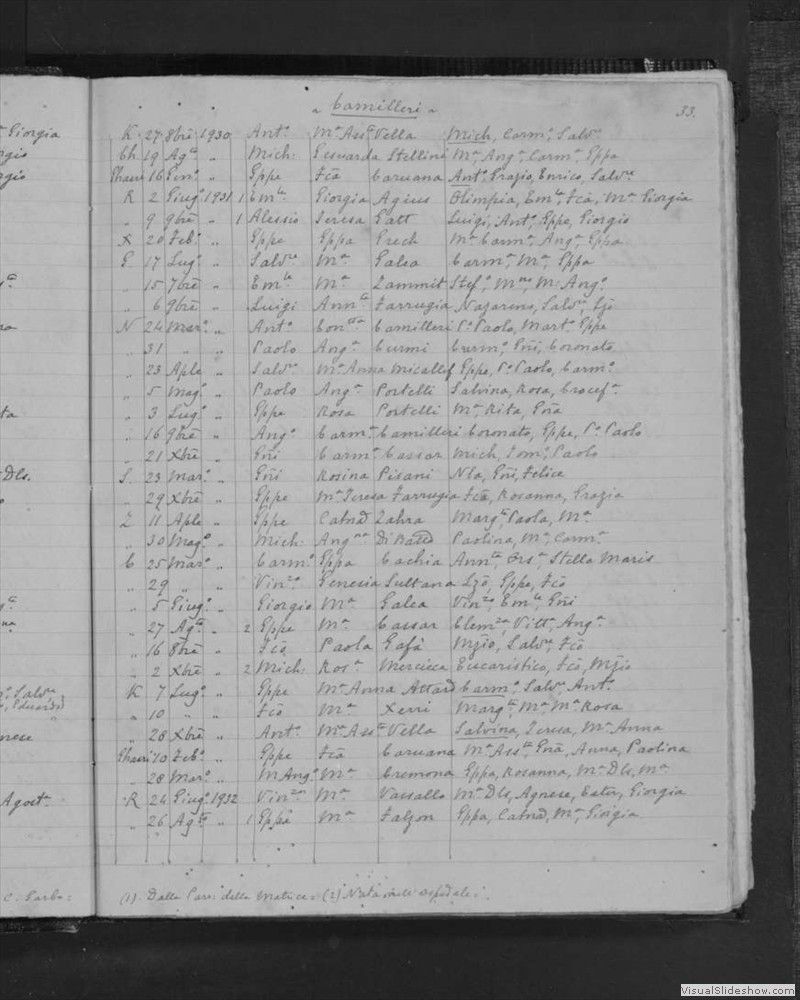 Giorgia
„ Camilleri „
33.
K 27 8bre 1930 Ant.o M.a Ass.ta Vella Mich, Carm.o, Salv.re
Ch 19 Ag.to „ Mich: Stellini M.a Ang.a Carm.a Eppa
Ghauri 16 Gen.o „ Eppe Fcã Caruana Ant.o Grazio, Enrico, Salv.re
R 2 Giug.o 1931 1 Em.le Giorgia Agius Olimpia, Em.le, Fcã, M.a Giorgia
„ 9 9bre „ 1 Alessio Teresa Gatt Luigi, Ant.o, Eppe, Giorgio
X 20 Feb.o „ Eppe Eppa Grech M.a Carm.a, Ang.a, Eppa
G 17 Lug.o „ Salv.re M.a Galea Carm.a, M.a, Eppa
„ 15 7bre „ Em.le M.a Zammit Stef.o, M: Ang.o
„ 6 9bre „ Luigi Ann.ta Farrugia Nazareno, Salv.re
N 24 Mar.o „ Ant.o Camilleri P.o Paolo, Mart.o, Eppe
„ 31 „ „ Paolo Ang.a Curmi Carm.o, Gñi, Coronato
„ 23 Aple „ Salv.re M.a Anna Micallef Eppe, P.o Paolo, Carm.o
„ 5 Mag.o „ Paolo Ang.a Portelli Salvina, Rosa, Crocef.a
„ 3 Lug.o „ Eppe Rosa Portelli M.a Rita, Gña
„ 16 9bre „ Ang.o Carm.a Camilleri Coronato, Eppe, P.o Paolo
„ 21 Xbre „ Gñi Carm.a Cassar Mich, Tom.o, Paolo
S 23 Mar.o „ Gñi Rosina Pisani Nla, Gñi, Felice
„ 29 Xbre „ Eppe M.a Teresa Farrugia Fcã, Rosanna, Grazia
Z 11 Aple „ Eppe Catnã Zahra Marg.ta, Paola, M.a
„ 30 Mag.o „ Mich: Ang.na Di Batt̃a Paolina, M.a, Carm.a
C 25 Mar.o „ Carm.o Eppa Cachia Ann.ta, Ors.a, Stella Maris
„ 29 „ „ Vin.zo Genesia Sultana Lzõ, Eppe, Fcõ
„ 5 Giug.o „ Giorgio M.a Galea Vin.zo, Em.le, Gñi
„ 27 Ag.to „ 2 Eppe M.a Cassar Clem.za, Vitt.a, Ang.a
„ 16 8bre „ Fcõ Paola Gafà Mzio, Salv.re, Fcõ
„ 2 Xbre „ 2 Mich: Ros.a Mercieca Eucaristico, Fcõ, Mzio
K 7 Lug.o „ Eppe M.a Anna Attard Carm.o, Salv.re, Ant.o
„ 10 „ „ Fcõ M.a Xerri Marg.ta, M.a M.a Rosa
„ 28 Xbre „ Ant.o M.a Ass.ta Vella Salvina, Teresa, M.a Anna
Ghauri 10 Feb.o „ Eppe Fcã Caruana M.a Ass.ta, Gñã, Anna, Paolina
„ 28 Mar.o „ M Ang.o M.a Cremona Eppa, Rosanna, M.a Dls, M.a
R 24 Giug.o 1932 Vin.zo M.a Vassallo M.a Dls, Agnese, Ester, Giorgia
„ 26 Ag.to „ 1 Eppe M.a Falzon Eppa, Catnã, M.a Giorgia
(1) Dalla Parr. della Matrice. (2) Nata nell' ospedale.
VisualSlideshow.com